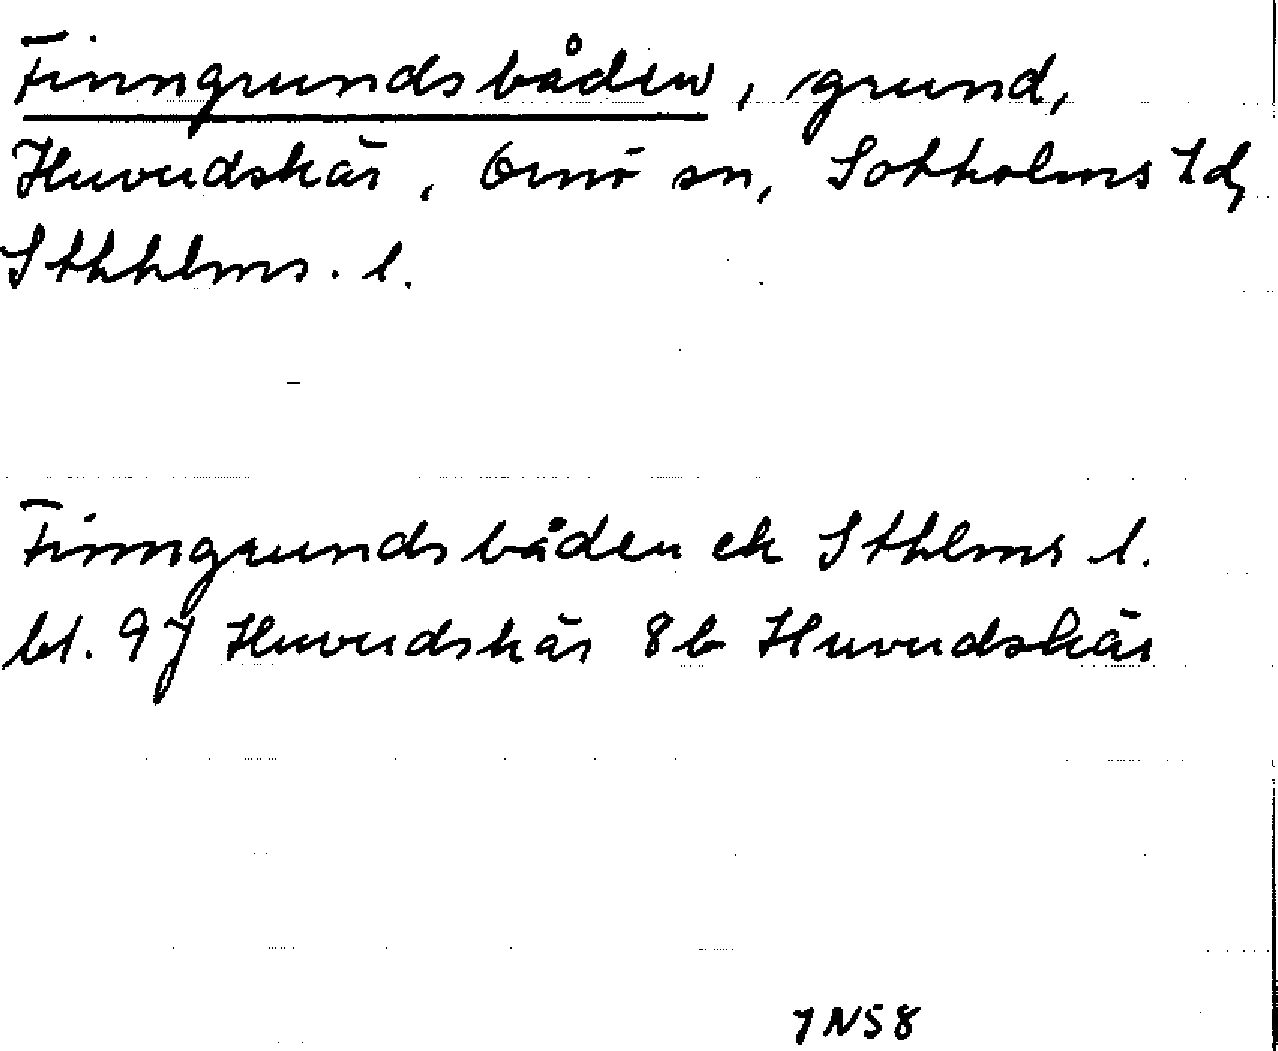 Finngrundsbåden, grund,
Huvudskär, Ornö sn, Sotholms hd,
Sthhlms. l.
Finngrundsbåden ek Sthlms l.
bl. 97 Huvudskär 8b Huvudskär
7N58